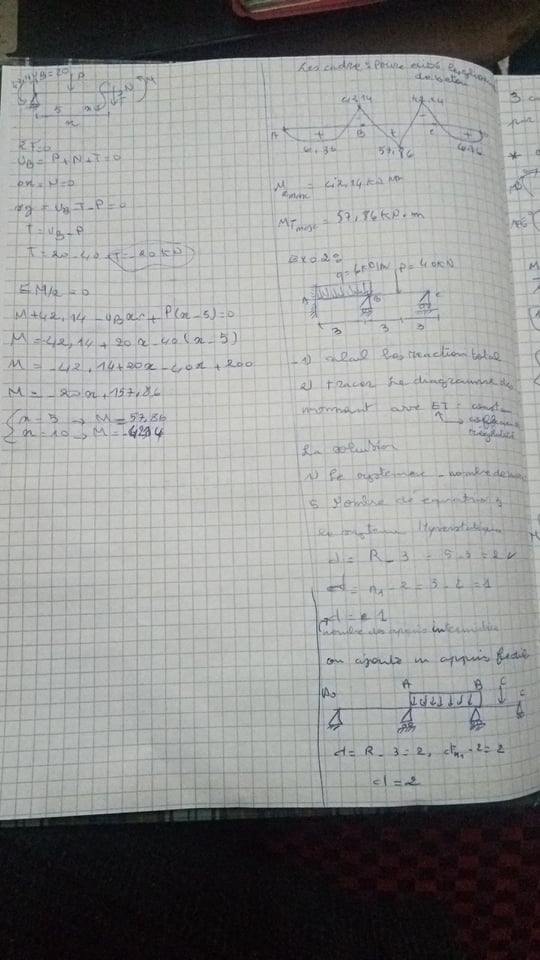 VB=20
P
N
T
M
5
x
ΣF=0
VB = P+N+T=0
ox = N=0
oy = VB-T-P=0
T = VB-P
T = 20-40 T=-20 KN
ΣM/2 = 0
M+42,14 -VBx + P(x-5)=0
M = -42,14 + 20x -40(x-5)
M = -42,14+20x-40x+200
M = -20x+157,86
x=5 → M=57,86
x=10 → M=-42,14
42,14
42,14
A
+
B
+
-
C
+
6,36
57,86
6,36
Mmax = 42,14 KN.m
MTmax = 57,86 KN.m
Exo 2:
P=40KN
A
B
C
3
3
3
1) calcul les reaction
2) tracer le diagramme de
moment avec EI = constan
La solution
1) Le systeme - nombre de
5 Nombre de equation 3
le systeme Hyperstatique
d = R-3 = 5-3 = 2
d = n1-2 = 3-2 = 1
d = 1
nombre des appuis intermidia
on ajoute un appuis
A0
A
B
C
C
d = R-3=2, dn1-2=2
d=2